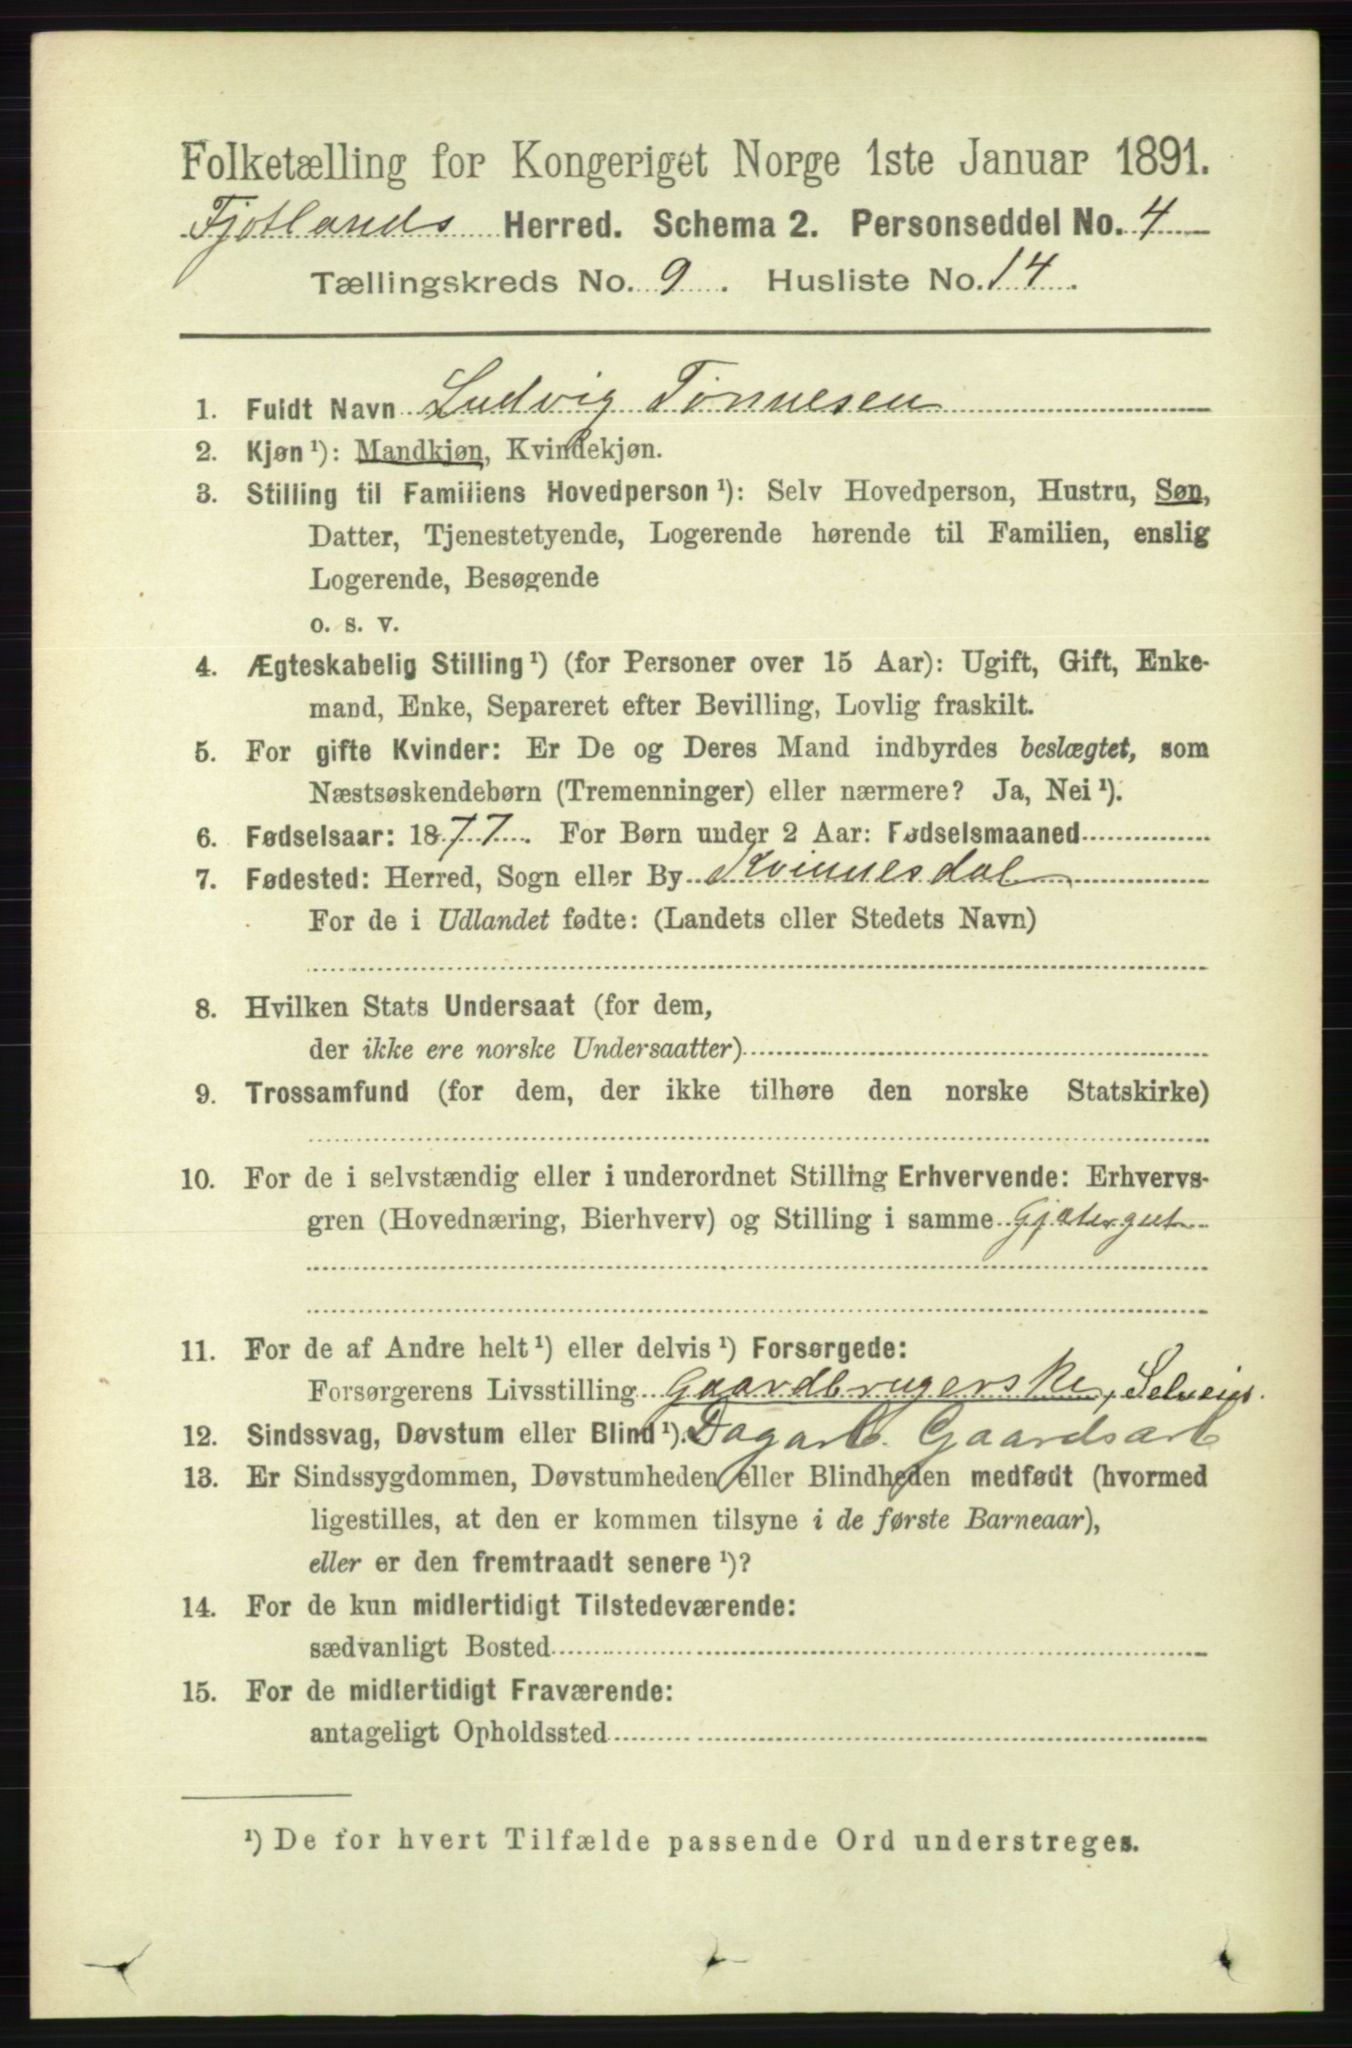 Folketælling for Kongeriget Norge 1ste Januar 1891.
Fjotlands Herred. Schema 2. Personseddel No. 4
Tællingskreds No. 9. Husliste No. 14.
1. Fuldt Navn Ludvig Tønnesen
2. Kjøn ¹): Mandkjøn, Kvindekjøn.
3. Stilling til Familiens Hovedperson ¹): Selv Hovedperson, Hustru, Søn,
Datter, Tjenestetyende, Logerende hørende til Familien, enslig
Logerende, Besøgende
o. s. v.
4. Ægteskabelig Stilling ¹) (for Personer over 15 Aar): Ugift, Gift, Enke-
mand, Enke, Separeret efter Bevilling, Lovlig fraskilt.
5. For gifte Kvinder: Er De og Deres Mand indbyrdes beslægtet, som
Næstsøskendebørn (Tremenninger) eller nærmere? Ja, Nei ¹).
6. Fødselsaar: 1877. For Børn under 2 Aar: Fødselsmaaned
7. Fødested: Herred, Sogn eller By Kvinnesdal
For de i Udlandet fødte: (Landets eller Stedets Navn)
8. Hvilken Stats Undersaat (for dem,
der ikke ere norske Undersaatter)
9. Trossamfund (for dem, der ikke tilhøre den norske Statskirke)
10. For de i selvstændig eller i underordnet Stilling Erhvervende: Erhvervs-
gren (Hovednæring, Bierhverv) og Stilling i samme Gjætergut
11. For de af Andre helt ¹) eller delvis ¹) Forsørgede:
Forsørgerens Livsstilling Gaardbrugerske, Selveier.
12. Sindssvag, Døvstum eller Blind ¹). Dagarb. Gaardsarb
13. Er Sindssygdommen, Døvstumheden eller Blindheden medfødt (hvormed
ligestilles, at den er kommen tilsyne i de første Barneaar),
eller er den fremtraadt senere ¹)?
14. For de kun midlertidigt Tilstedeværende:
sædvanligt Bosted
15. For de midlertidigt Fraværende:
antageligt Opholdssted
¹) De for hvert Tilfælde passende Ord understreges.